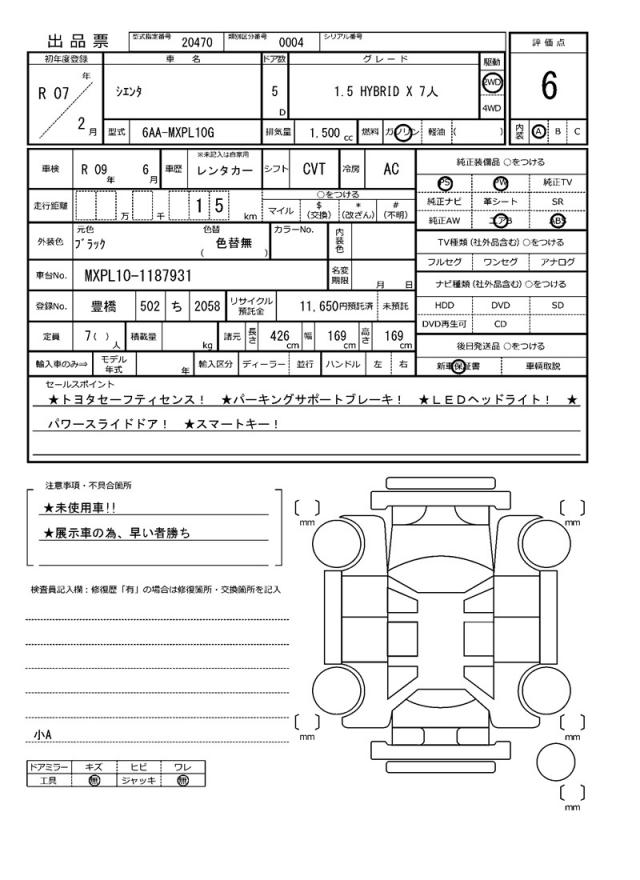 出品票 型式指定番号 20470 類別区分番号 0004 シリアル番号 評価点
初年度登録 車名 ドア数 グレード 駆動
R 07 年 2 月 シエンタ 5 D 1.5 HYBRID X 7人 2WD 4WD 6
型式 6AA-MXPL10G 排気量 1.500 cc 燃料 ガソリン 軽油 ( ) 内装 A B C
車検 R 09 年 6 月 車歴 ※未記入は自家用 レンタカー シフト CVT 冷房 AC 純正装備品 ○をつける
PS PW 純正TV
走行距離 万 千 1 5 km ○をつける
マイル $ (交換) * (改ざん) # (不明)
純正ナビ 革シート SR
純正AW エアB ABS
外装色 元色 ブラック 色替 ( 色替無 ) カラーNo. 内装色
TV種類 (社外品含む) ○をつける
フルセグ ワンセグ アナログ
車台No. MXPL10-1187931 名変期限 月 日
ナビ種類 (社外品含む) ○をつける
登録No. 豊橋 502 ち 2058 リサイクル預託金 11,650円預託済 未預託
HDD DVD SD
DVD再生可 CD
定員 7( ) 人 積載量 kg 諸元 長さ 426 cm 幅 169 cm 高さ 169 cm
後日発送品 ○をつける
輸入車のみ⇒ モデル年式 年 輸入区分 ディーラー 並行 ハンドル 左 右 新車保証書 車輌取説
セールスポイント
★トヨタセーフティセンス！ ★パーキングサポートブレーキ！ ★ＬＥＤヘッドライト！ ★
パワースライドドア！ ★スマートキー！
注意事項・不具合箇所
★未使用車!!
★展示車の為、早い者勝ち
mm mm
検査員記入欄：修復歴「有」の場合は修復箇所・交換箇所を記入
小A
mm mm
ドアミラー キズ ヒビ ワレ
工具 無 ジャッキ 無
mm